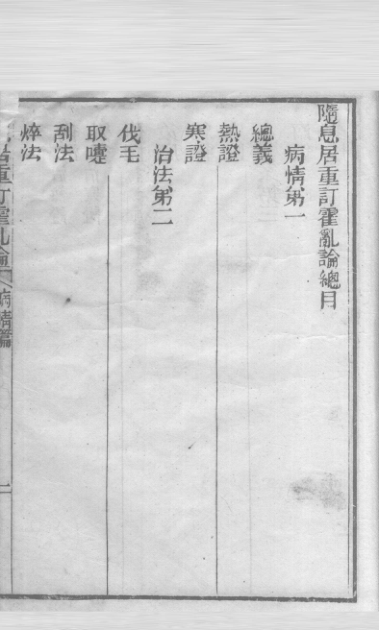 隨息居重訂霍亂論總目
病情第一
總義
熱證
寒證
治法第二
伐毛
取嚏
刮法
焠法
居重訂霍亂論
病情篇
一